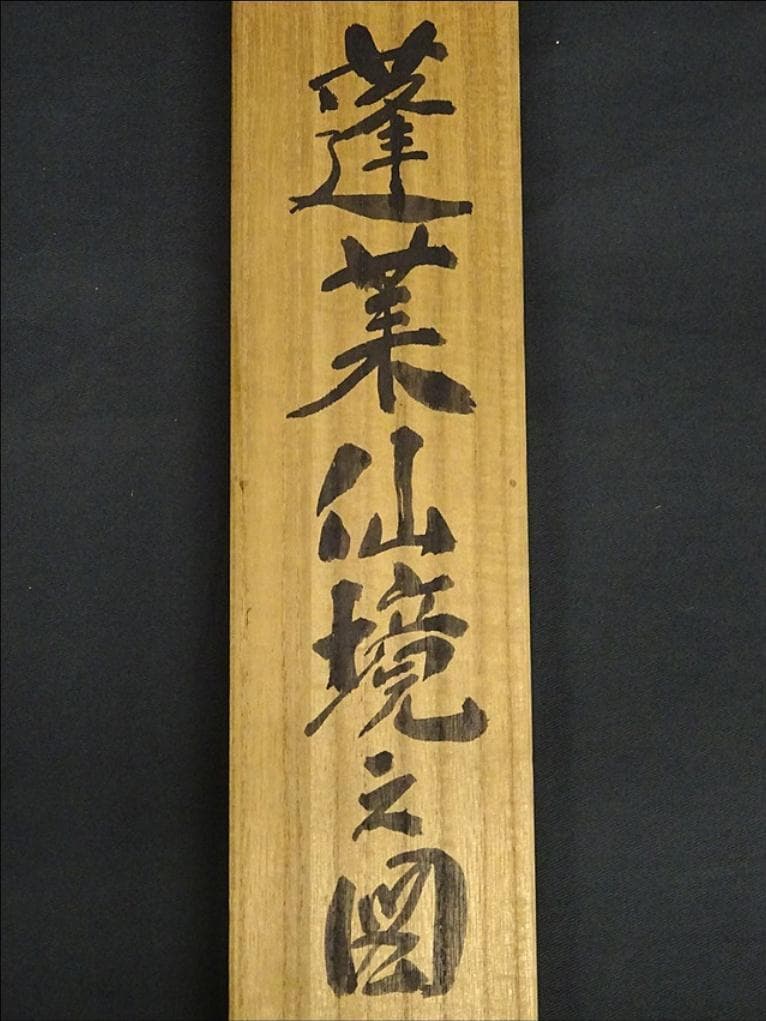 蓬莱仙境之圖